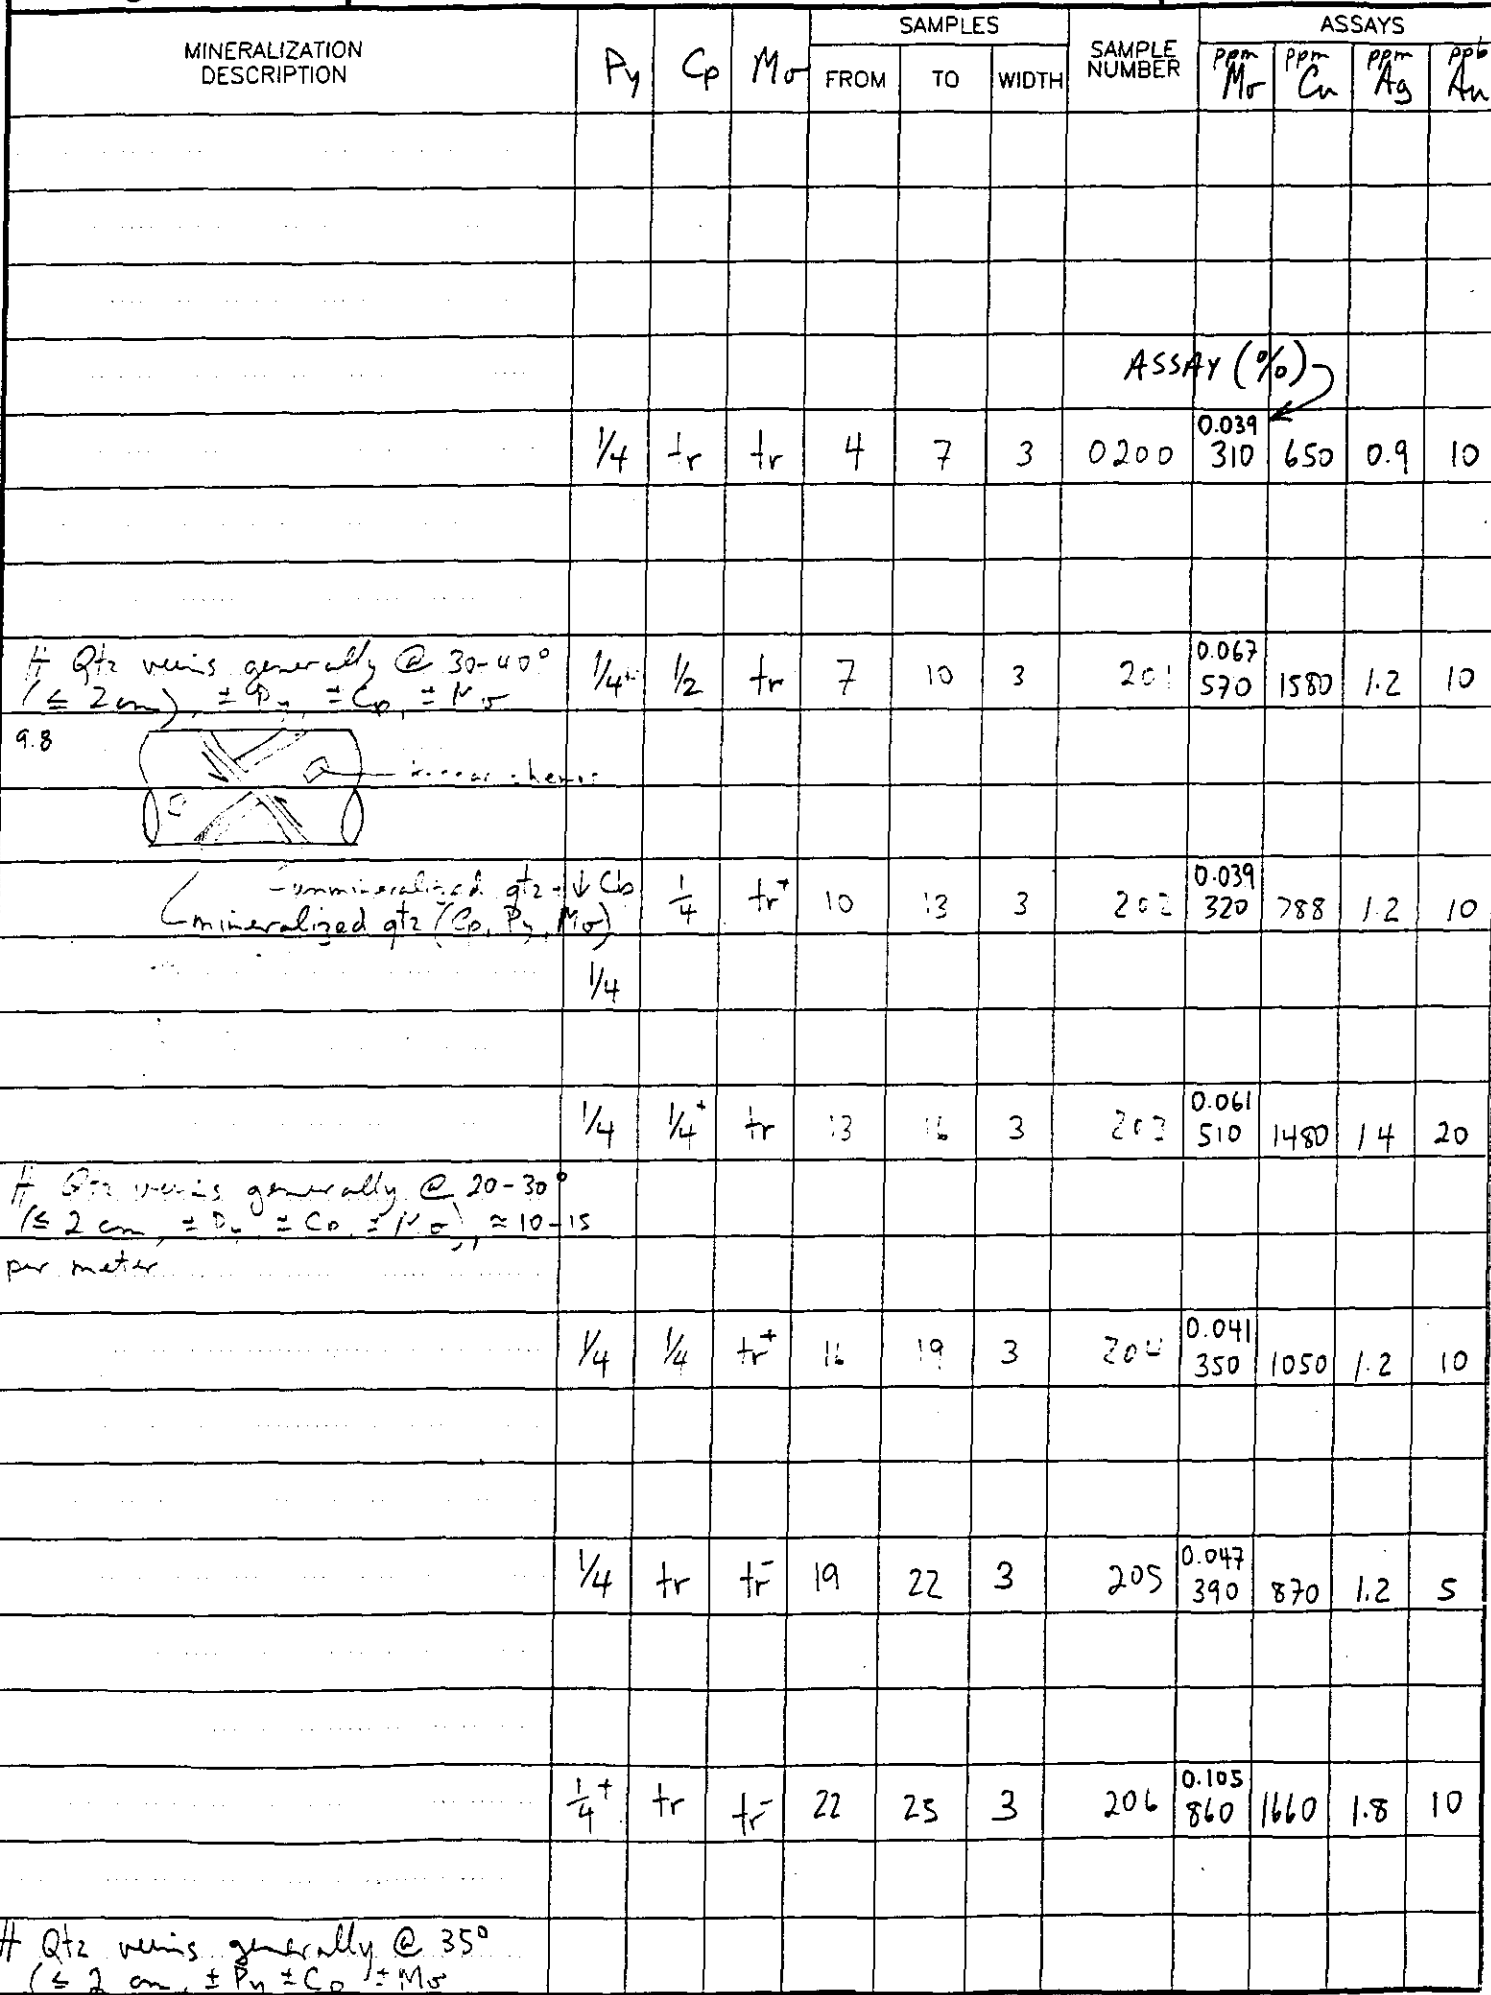 MINERALIZATION DESCRIPTION Py Cp Mo SAMPLES FROM TO WIDTH SAMPLE NUMBER ASSAYS ppm Mo ppm Cu ppm Ag ppb Au
ASSAY (%)
0.039
1/4 tr tr 4 7 3 0200 310 650 0.9 10
# Qtz veins generally @ 30-40°
0.067
(≤ 2 cm), ± Py, ± Cp, ± Mo 1/4+ 1/2 tr 7 10 3 201 570 1580 1.2 10
9.8
-unmineralized qtz
0.039
mineralized qtz (Cp, Py, Mo) 1/4 tr+ 10 13 3 202 320 788 1.2 10
1/4
0.061
1/4 1/4+ tr 13 16 3 203 510 1480 1.4 20
# Qtz veins generally @ 20-30°
(≤ 2 cm, ± Py ± Cp, ± Mo), ≈ 10-15
per meter
0.041
1/4 1/4 tr+ 16 19 3 204 350 1050 1.2 10
0.047
1/4 tr tr- 19 22 3 205 390 870 1.2 5
0.105
1/4+ tr tr- 22 25 3 206 860 1660 1.8 10
# Qtz veins generally @ 35°
(≤ 2 cm, ± Py ± Cp ± Mo